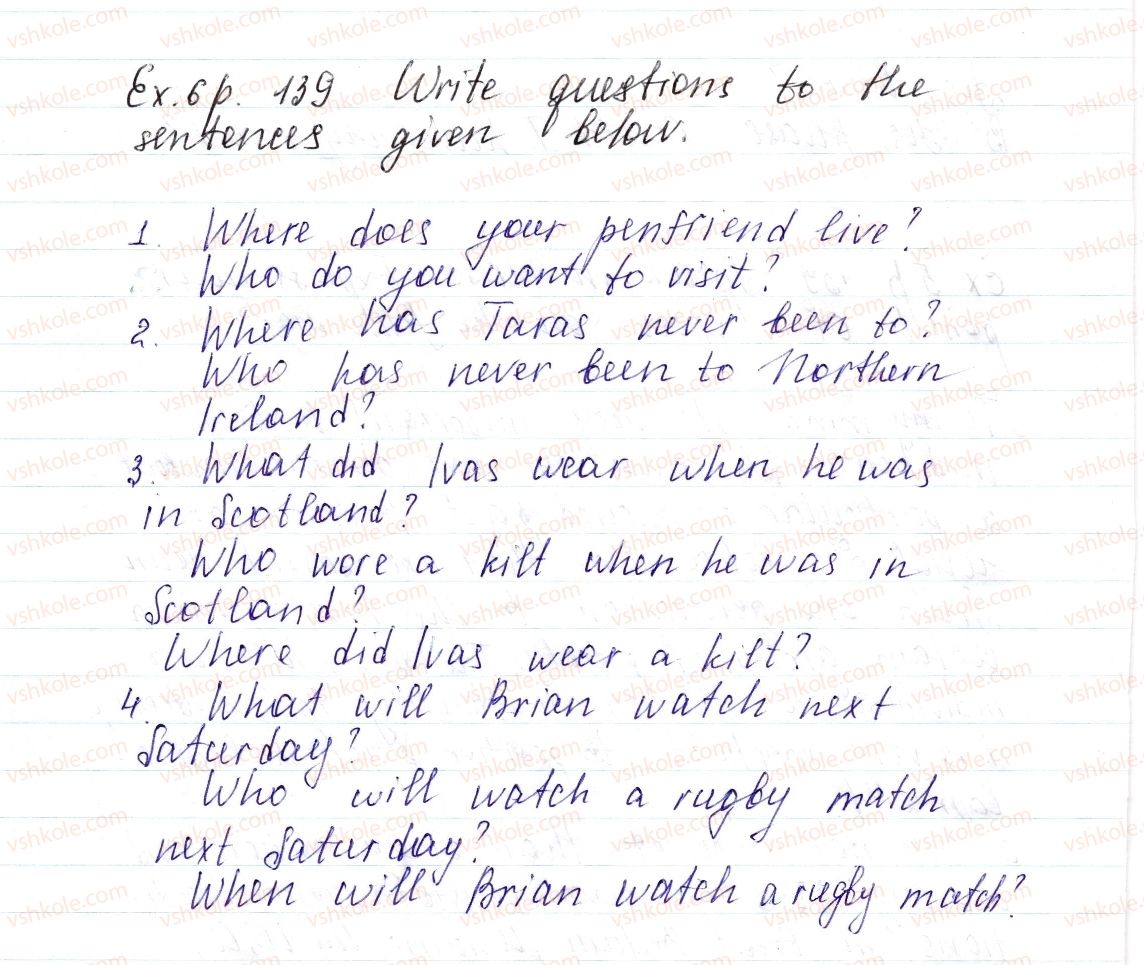 Ex. 6 p. 139 Write questions to the
sentences given below.
1. Where does your penfriend live?
Who do you want to visit?
2. Where has Taras never been to?
Who has never been to Northern
Ireland?
3. What did Ivas wear when he was
in Scotland?
Who wore a kilt when he was in
Scotland?
Where did Ivas wear a kilt?
4. What will Brian watch next
Saturday?
Who will watch a rugby match
next Saturday?
When will Brian watch a rugby match?